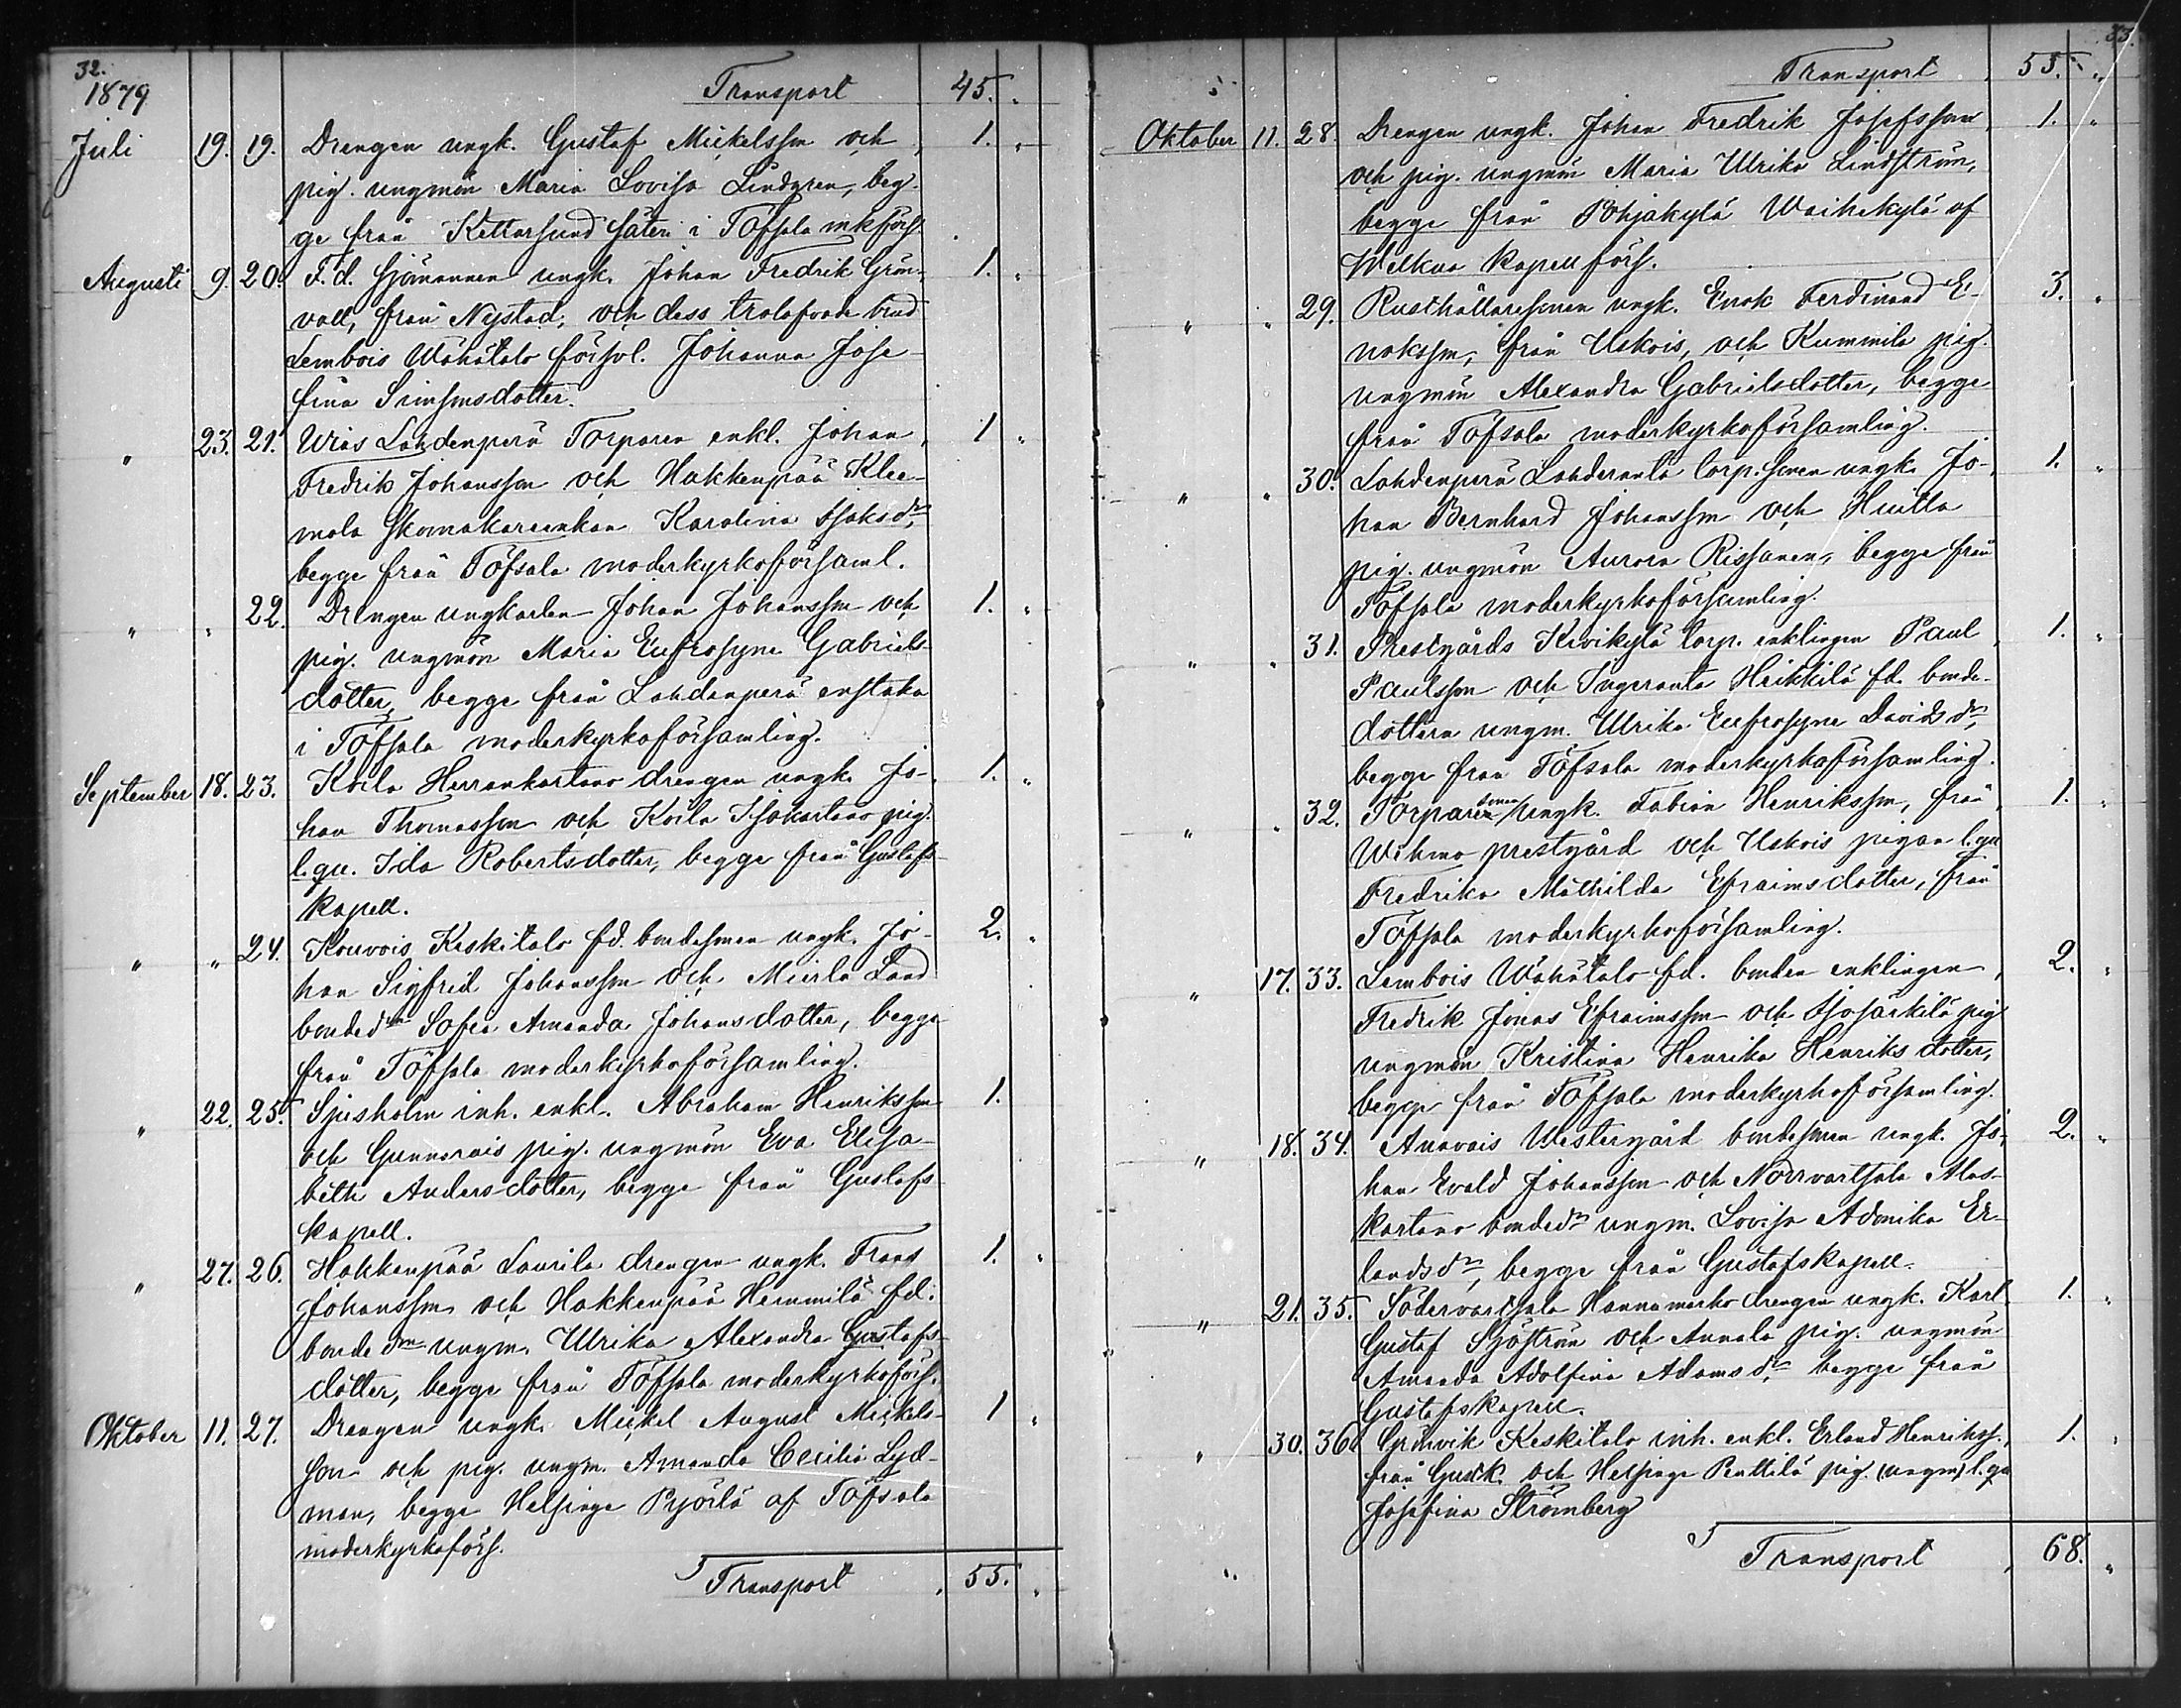 32.
1879 Transport 45. "
Juli 19. 19. Drengen ungk. Gustaf Mickelsson och 1. "
pig. ungmön Maria Lovisa Lindgren, beg-
ge från Kettarsund säteri i Töfsala mkförs.
Augusti 9. 20. F. d. sjömannen ungk. Johan Fredrik Grön- 1. "
vall, från Nystad, och dess trolofvade brud
Lembois Wähätalo försvl. Johanna Jose-
fina Simonsdotter.
" 23. 21. Wias Lahdenperä Torparen enkl. Johan 1 "
Fredrik Johansson och Hakkenpää Klee-
mola Skomakareenkan Karolina Isaksdr,
begge från Töfsala moderkyrkoförsaml.
" " 22. Drengen ungkarlen Johan Johansson och 1. "
pig. ungmön Maria Eufrosyne Gabriels-
dotter, begge från Lahdenperä enstaka
i Töfsala moderkyrkoförsamling.
September 18. 23. Koila Herrankartano drengen ungk. Jo- 1. "
han Thomasson och Koila Isokartano pig.
l. qv. Ida Robertsdotter, begge från Gustafs
kapell.
" " 24. Kouvois Keskitalo fd. bondesonen ungk. Jo- 2. "
han Sigfrid Johansson och Mierla Land
bondedr Sofia Amanda Johansdotter, begge
från Töfsala moderkyrkoförsamling.
" 22. 25. Spisholm inh. enkl. Abraham Henriksson 1.
och Gunnarais pig. ungmön Eva Elisa-
beth Andersdotter, begge från Gustafs
kapell.
" 27. 26. Hakkenpää Laurila drengen ungk. Frans 1. "
Johansson och Hakkenpää Hemmilä fd.
bondedrn ungm. Ulrika Alexandra Gustafs-
dotter, begge från Töfsala moderkyrkoförs.
Oktober 11. 27. Drengen ungk. Mickel August Mickels- 1 "
son och pig. ungm. Amanda Cecilia Lyd-
man, begge Helsinge Pyörlä af Töfsala
moderkyrkoförs.
Transport 55. "
33.
Transport 55. "
Oktober 11. 28. Drengen ungk. Johan Fredrik Josefsson 1. "
och pig. ungmön Maria Ulrika Lindström,
begge från Pohjakylä Waihekylä af
Welkua kapellförs.
" " 29. Rusthållaresonen ungk. Enok Ferdinand E- 3. "
noksson, från Uskois, och Kummila pig.
ungmön Alexandra Gabrielsdotter, begge
från Töfsala moderkyrkoförsamling.
" " 30. Lahdenperä Lahderanta torp.sonen ungk. Jo- 1. "
han Bernhard Johansson och Huitla
pig. ungmön Aurora Rissanen, begge från
Töfsala moderkyrkoförsamling.
" " 31. Prestgårds Kivikylä torp. enklingen Paul 1. "
Paulsson och Ingeranta Heikkilä fd. bonde-
dottern ungm. Ulrika Eufrosyne Davidsdr,
begge från Töfsala moderkyrkoförsamling.
" " 32. Torparesonen ungk. Fabian Henriksson, från 1. "
Wehmo prestgård och Uskois pigan l. qv.
Fredrika Mathilda Efraimsdotter, från
Töfsala moderkyrkoförsamling.
" 17. 33. Lembois Wähätalo fd. bonden enklingen 2. "
Fredrik Jonas Efraimsson och Isosärkilä pig
ungmön Kristina Henrika Henriksdotter,
begge från Töfsala moderkyrkoförsamling.
" 18. 34. Anavais Westergård bondesonen ungk. Jo- 2. "
han Evald Johansson och Norrvartsala Alas-
kartano bondedr ungm. Lovisa Adonika Er-
landsdr, begge från Gustafskapell.
" 21. 35. Södervartsala Hannamarko drengen ungk. Karl 1. "
Gustaf Sjöström och Annala pig. ungmön
Amanda Adolfina Adamsdr, begge från
Gustafskapell.
" 30. 36. Grönvik Keskitalo inh. enkl. Erland Henrikss. 1. "
från Gust.k. och Helsinge Penttilä pig. (ungm) l. qv
Josefina Strömberg
" Transport 68. "